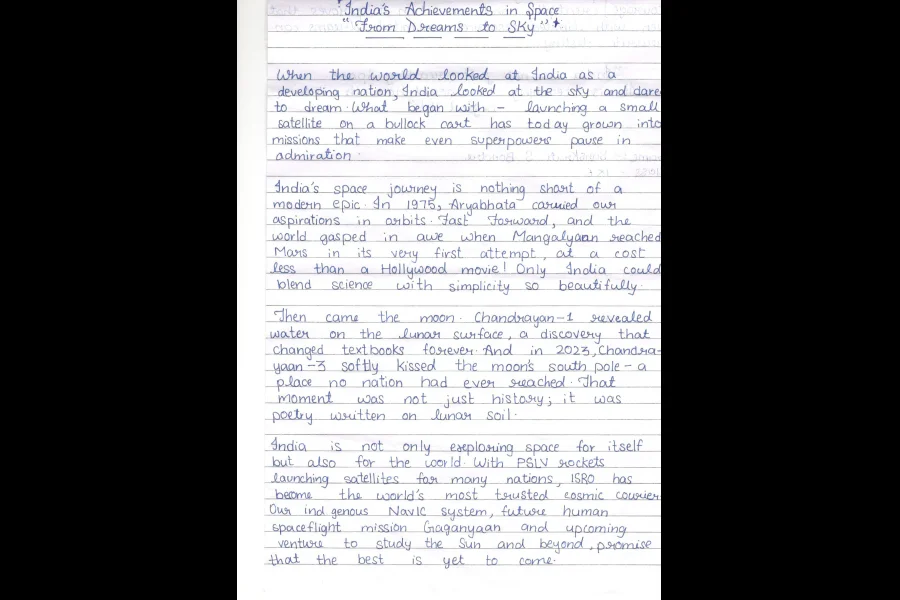 "India's Achievements in Space
"From Dreams to Sky"
When the world looked at India as a
developing nation, India looked at the sky and dare
to dream. What began with - launching a small
satellite on a bullock cart has today grown into
missions that make even superpowers pause in
admiration.
India's space journey is nothing short of a
modern epic. In 1975, Aryabhata carried our
aspirations in orbits. Fast Forward, and the
world gasped in awe when Mangalyaan reached
Mars in its very first attempt, at a cost
less than a Hollywood movie! Only India could
blend science with simplicity so beautifully.
Then came the moon. Chandrayan-1 revealed
water on the lunar surface, a discovery that
changed textbooks forever. And in 2023, Chandra-
yaan-3 softly kissed the moon's south pole - a
place no nation had ever reached. That
moment was not just history; it was
poetry written on lunar soil.
India is not only exploring space for itself
but also for the world. With PSLV rockets
launching satellites for many nations, ISRO has
become the world's most trusted cosmic courier.
Our indigenous NavIC system, future human
spaceflight mission Gaganyaan and upcoming
venture to study the Sun and beyond, promise
that the best is yet to come.